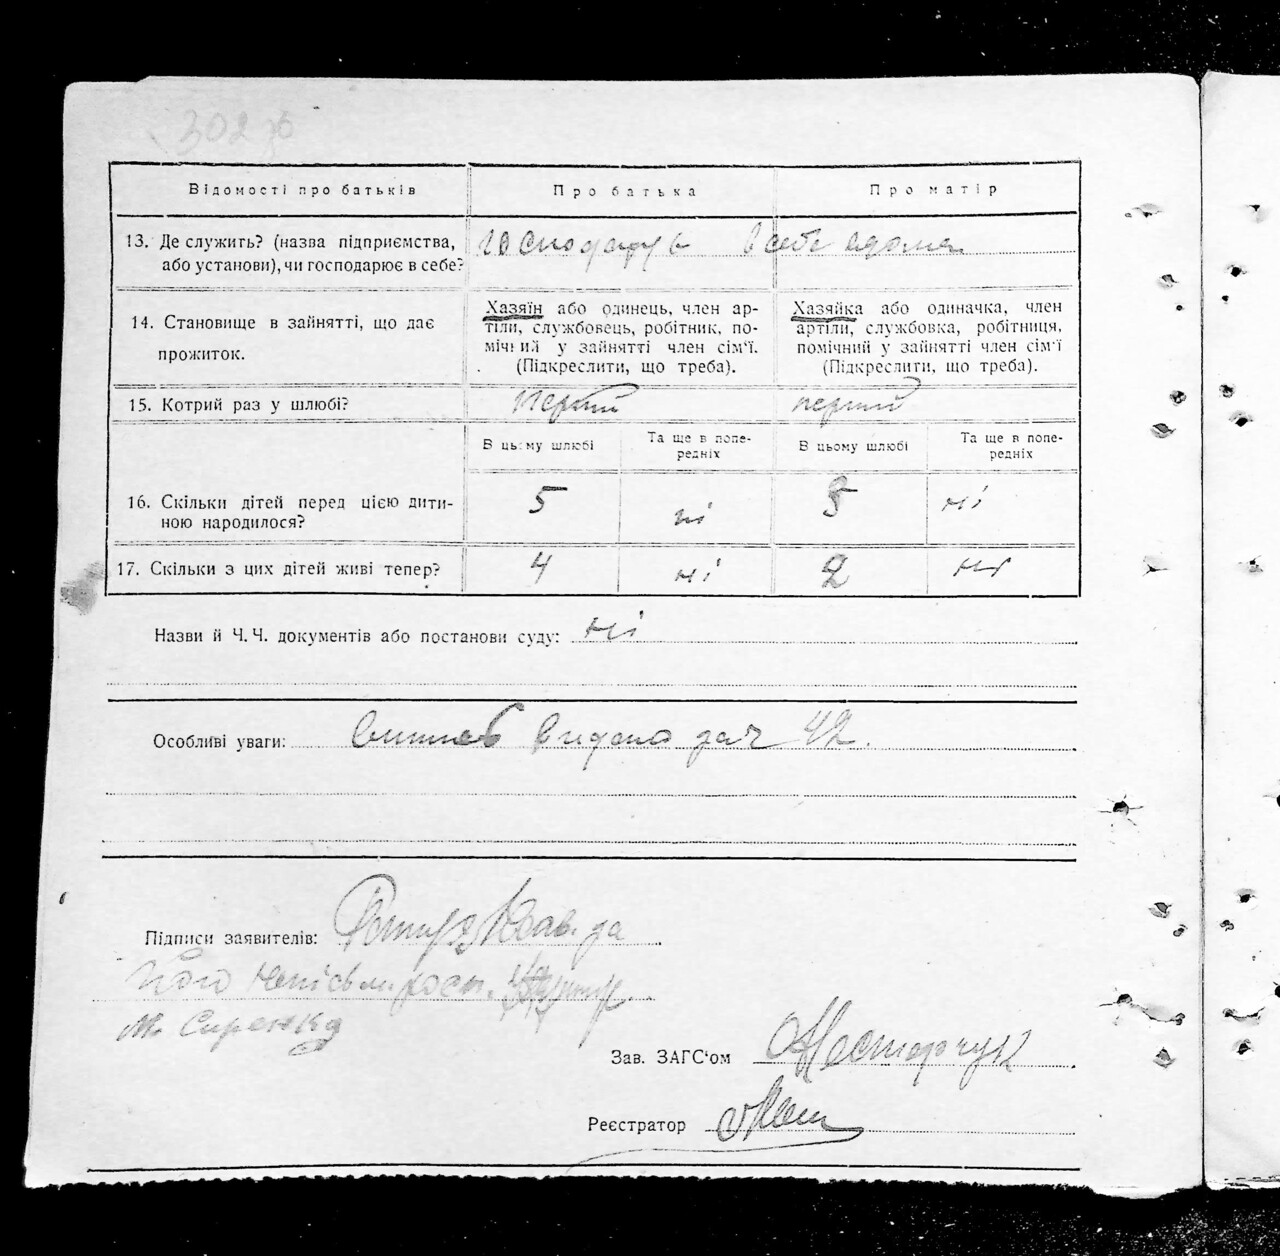 302 зб
Відомості про батьків
Про батька
Про матір
13. Де служить? (назва підприємства,
або установи), чи господарює в себе?
Господарує в себе вдома
14. Становище в зайнятті, що дає
прожиток.
Хазяїн або одинець, член ар-
тіли, службовець, робітник, по-
мічний у зайнятті член сім'ї.
(Підкреслити, що треба).
Хазяйка або одиначка, член
артіли, службовка, робітниця,
помічний у зайнятті член сім'ї
(Підкреслити, що треба).
15. Котрий раз у шлюбі?
перший
перший
В цьому шлюбі
Та ще в попе-
редніх
В цьому шлюбі
Та ще в попе-
редніх
16. Скільки дітей перед цією дити-
ною народилося?
5
ні
ні
17. Скільки з цих дітей живі тепер?
4
ні
2
ні
Назви й Ч.Ч. документів або постанови суду: ні
Особливі уваги: Витяг Видано за ч 42.
Підписи заявителів:
його неписьм. розп.
Сиренко
Зав. ЗАГС'ом Нестерчук
Реєстратор